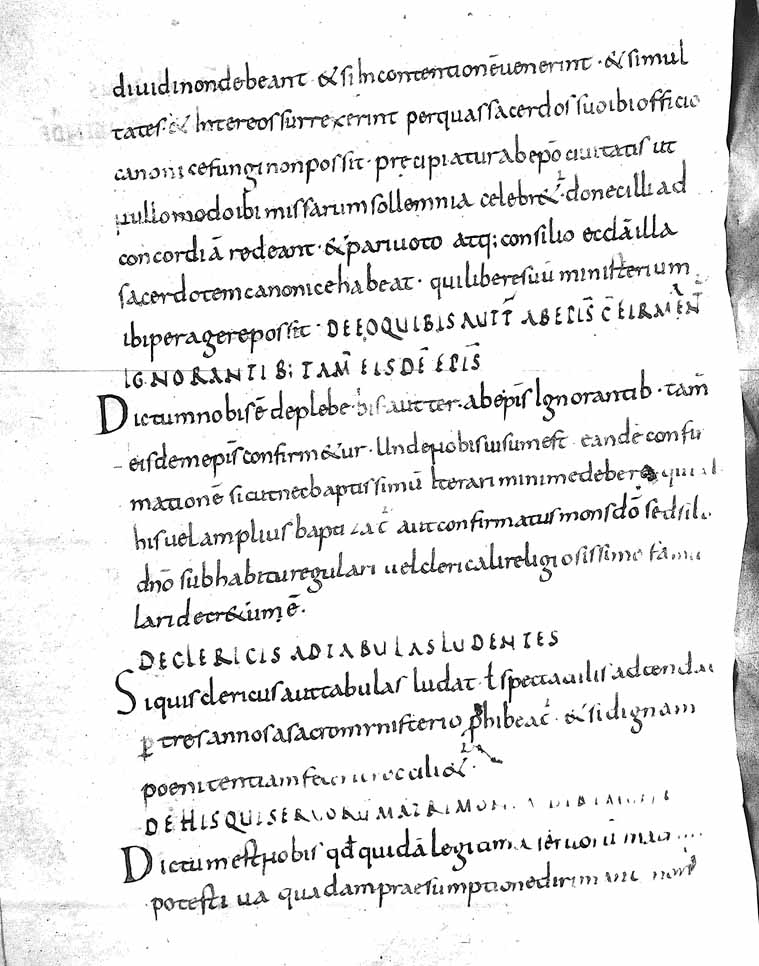 diuidi non debeant · & si In contentionē uenerint · & simul
tates · & Inter eos surrexerint per quas sacerdos suo ibi officio
canonice fungi non possit · precipiatur ab epō ciuitatis ut
nullo modo ibi missarum sollemnia celebr& · donec illi ad
concordiā redeant · & pari uoto atq; consilio ecclā illa
sacerdotem canonice habeat · qui libere suū ministerium
ibi peragere possit · DE EO QUI BIS AUT T̄ AB EPIS C̄FIRMEN̄T
IGNORANTIB; TAM̄ EIS DĒ EPIS̄
Dictum nobis ē de plebe bis aut ter · ab epīs Ignorantib · tam̄
eisdem epīs confirm&ur · Unde nobis uisum est eandē confir
mationē sicut nec baptissimū Iterari minime debere qui
bis uel amplius baptizat̄ aut confirmatus non s dō sed
dnō sub habitu regulari uel clericali religiosissime famu
lari decr&um ē ·
DE CLERICIS AD TABULAS LUDENTES
Si quis clericus aut tabulas ludat ł spectaculis adtendat
ꝑ tres annos a sacro mynisterio ꝓhibeat̄ · & si dignam
poenitentiam
DE HIS QUI SERUORŪ MATRIMONIA
Dictum est nobis qđ quidā legitima seruorū
potestiua quadam praesumptione dirimant non